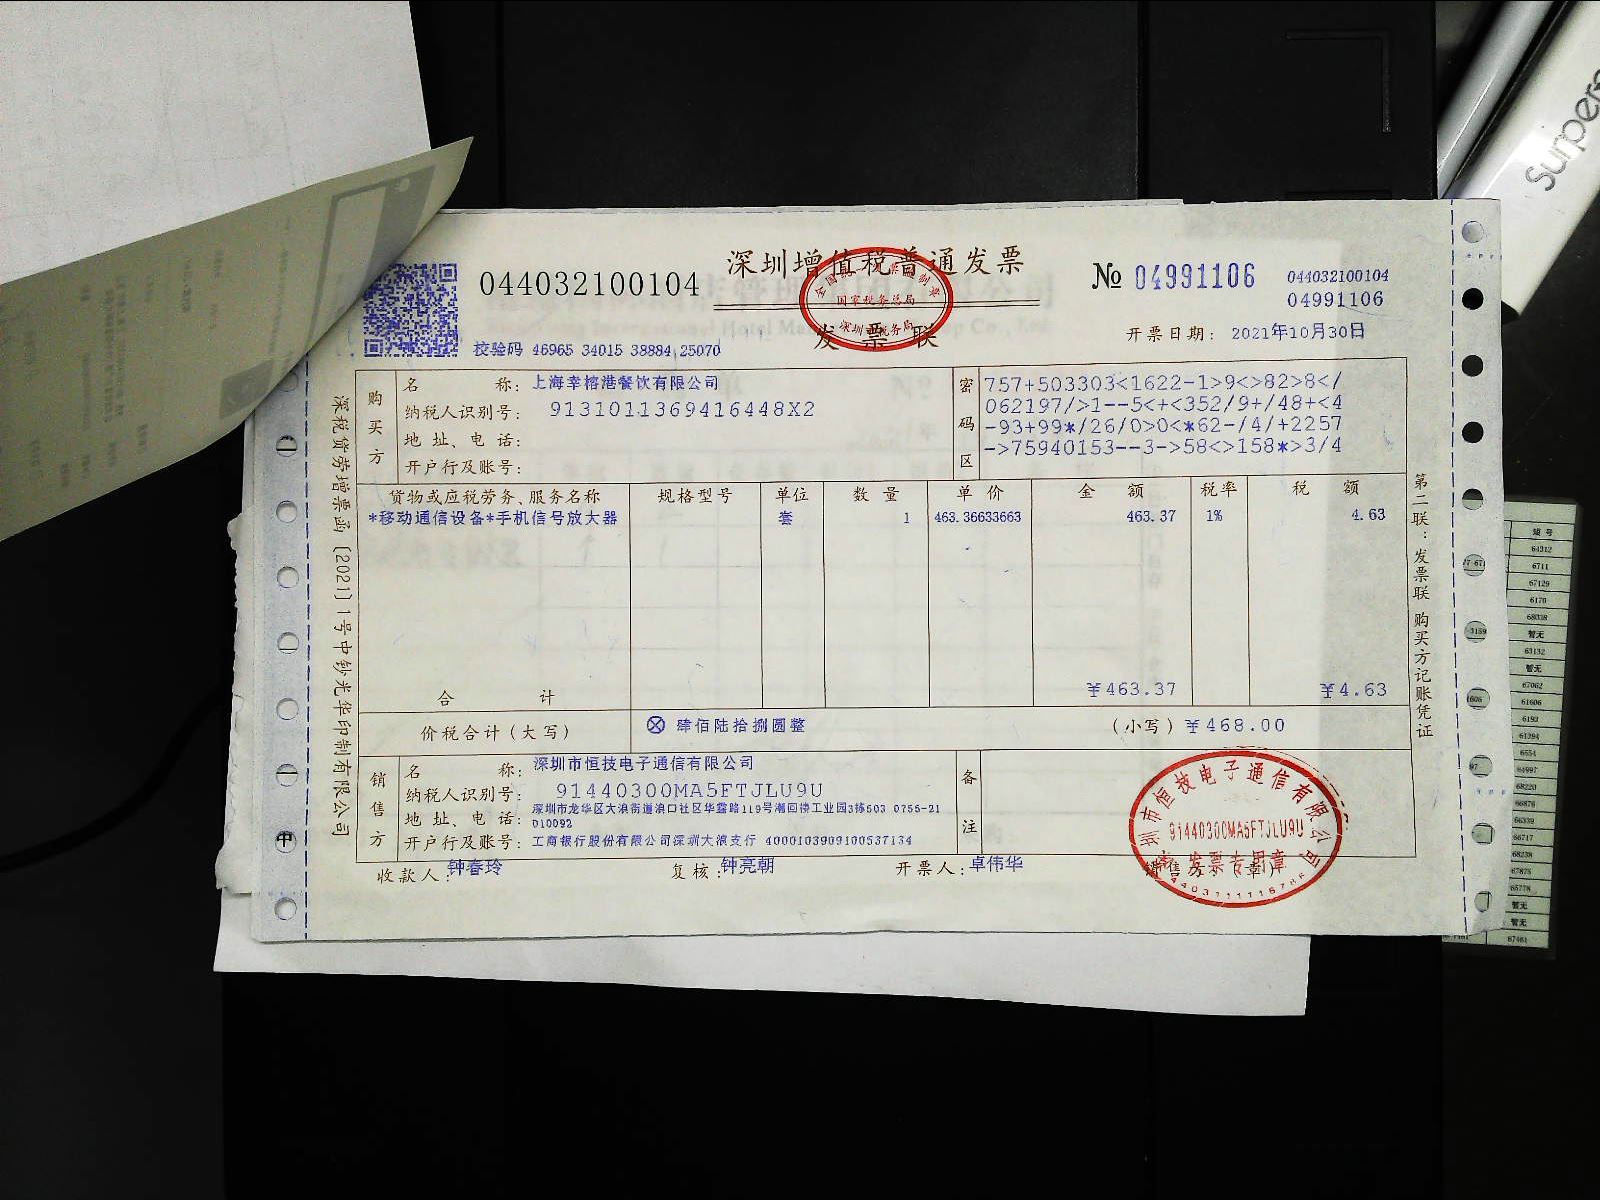 深圳增值税普通发票
044032100104
№ 04991106
044032100104
04991106
全国统一发票监制章
国家税务总局
深圳市税务局
发票联
开票日期： 2021年10月30日
校验码 46965 34015 38884 25070
购买方
名 称：上海幸榕港餐饮有限公司
纳税人识别号： 9131011369416448X2
地 址、电 话：
开户行及账号：
密码区
757+503303<1622-1>9<>82>8</
062197/>1--5<+<352/9+/48+<4
-93+99*/26/0>0<*62-/4/+2257
->75940153--3->58<>158*>3/4
货物或应税劳务、服务名称 规格型号 单位 数 量 单 价 金 额 税率 税 额
*移动通信设备*手机信号放大器 套 1 463.36633663 463.37 1% 4.63
合 计 ￥463.37 ￥4.63
价税合计（大写） ⊗ 肆佰陆拾捌圆整 （小写）￥468.00
销售方
名 称：深圳市恒技电子通信有限公司
纳税人识别号： 91440300MA5FTJLU9U
地 址、电 话：深圳市龙华区大浪街道浪口社区华霆路119号潮回楼工业园3栋503 0755-21
010092
开户行及账号：工商银行股份有限公司深圳大浪支行 4000103909100537134
备注
收款人：钟春玲 复核：钟亮朝 开票人：卓伟华 销售方：（章）
深圳市恒技电子通信有限公司
91440300MA5FTJLU9U
发票专用章
深税货劳增票函〔2021〕1号中钞光华印制有限公司
第二联：发票联 购买方记账凭证
短号
64312
6711
67129
6170
68038
暂无
63132
暂无
67062
61606
6193
61394
6554
64997
68220
66876
66339
66717
68238
67875
65778
暂无
暂无
67461